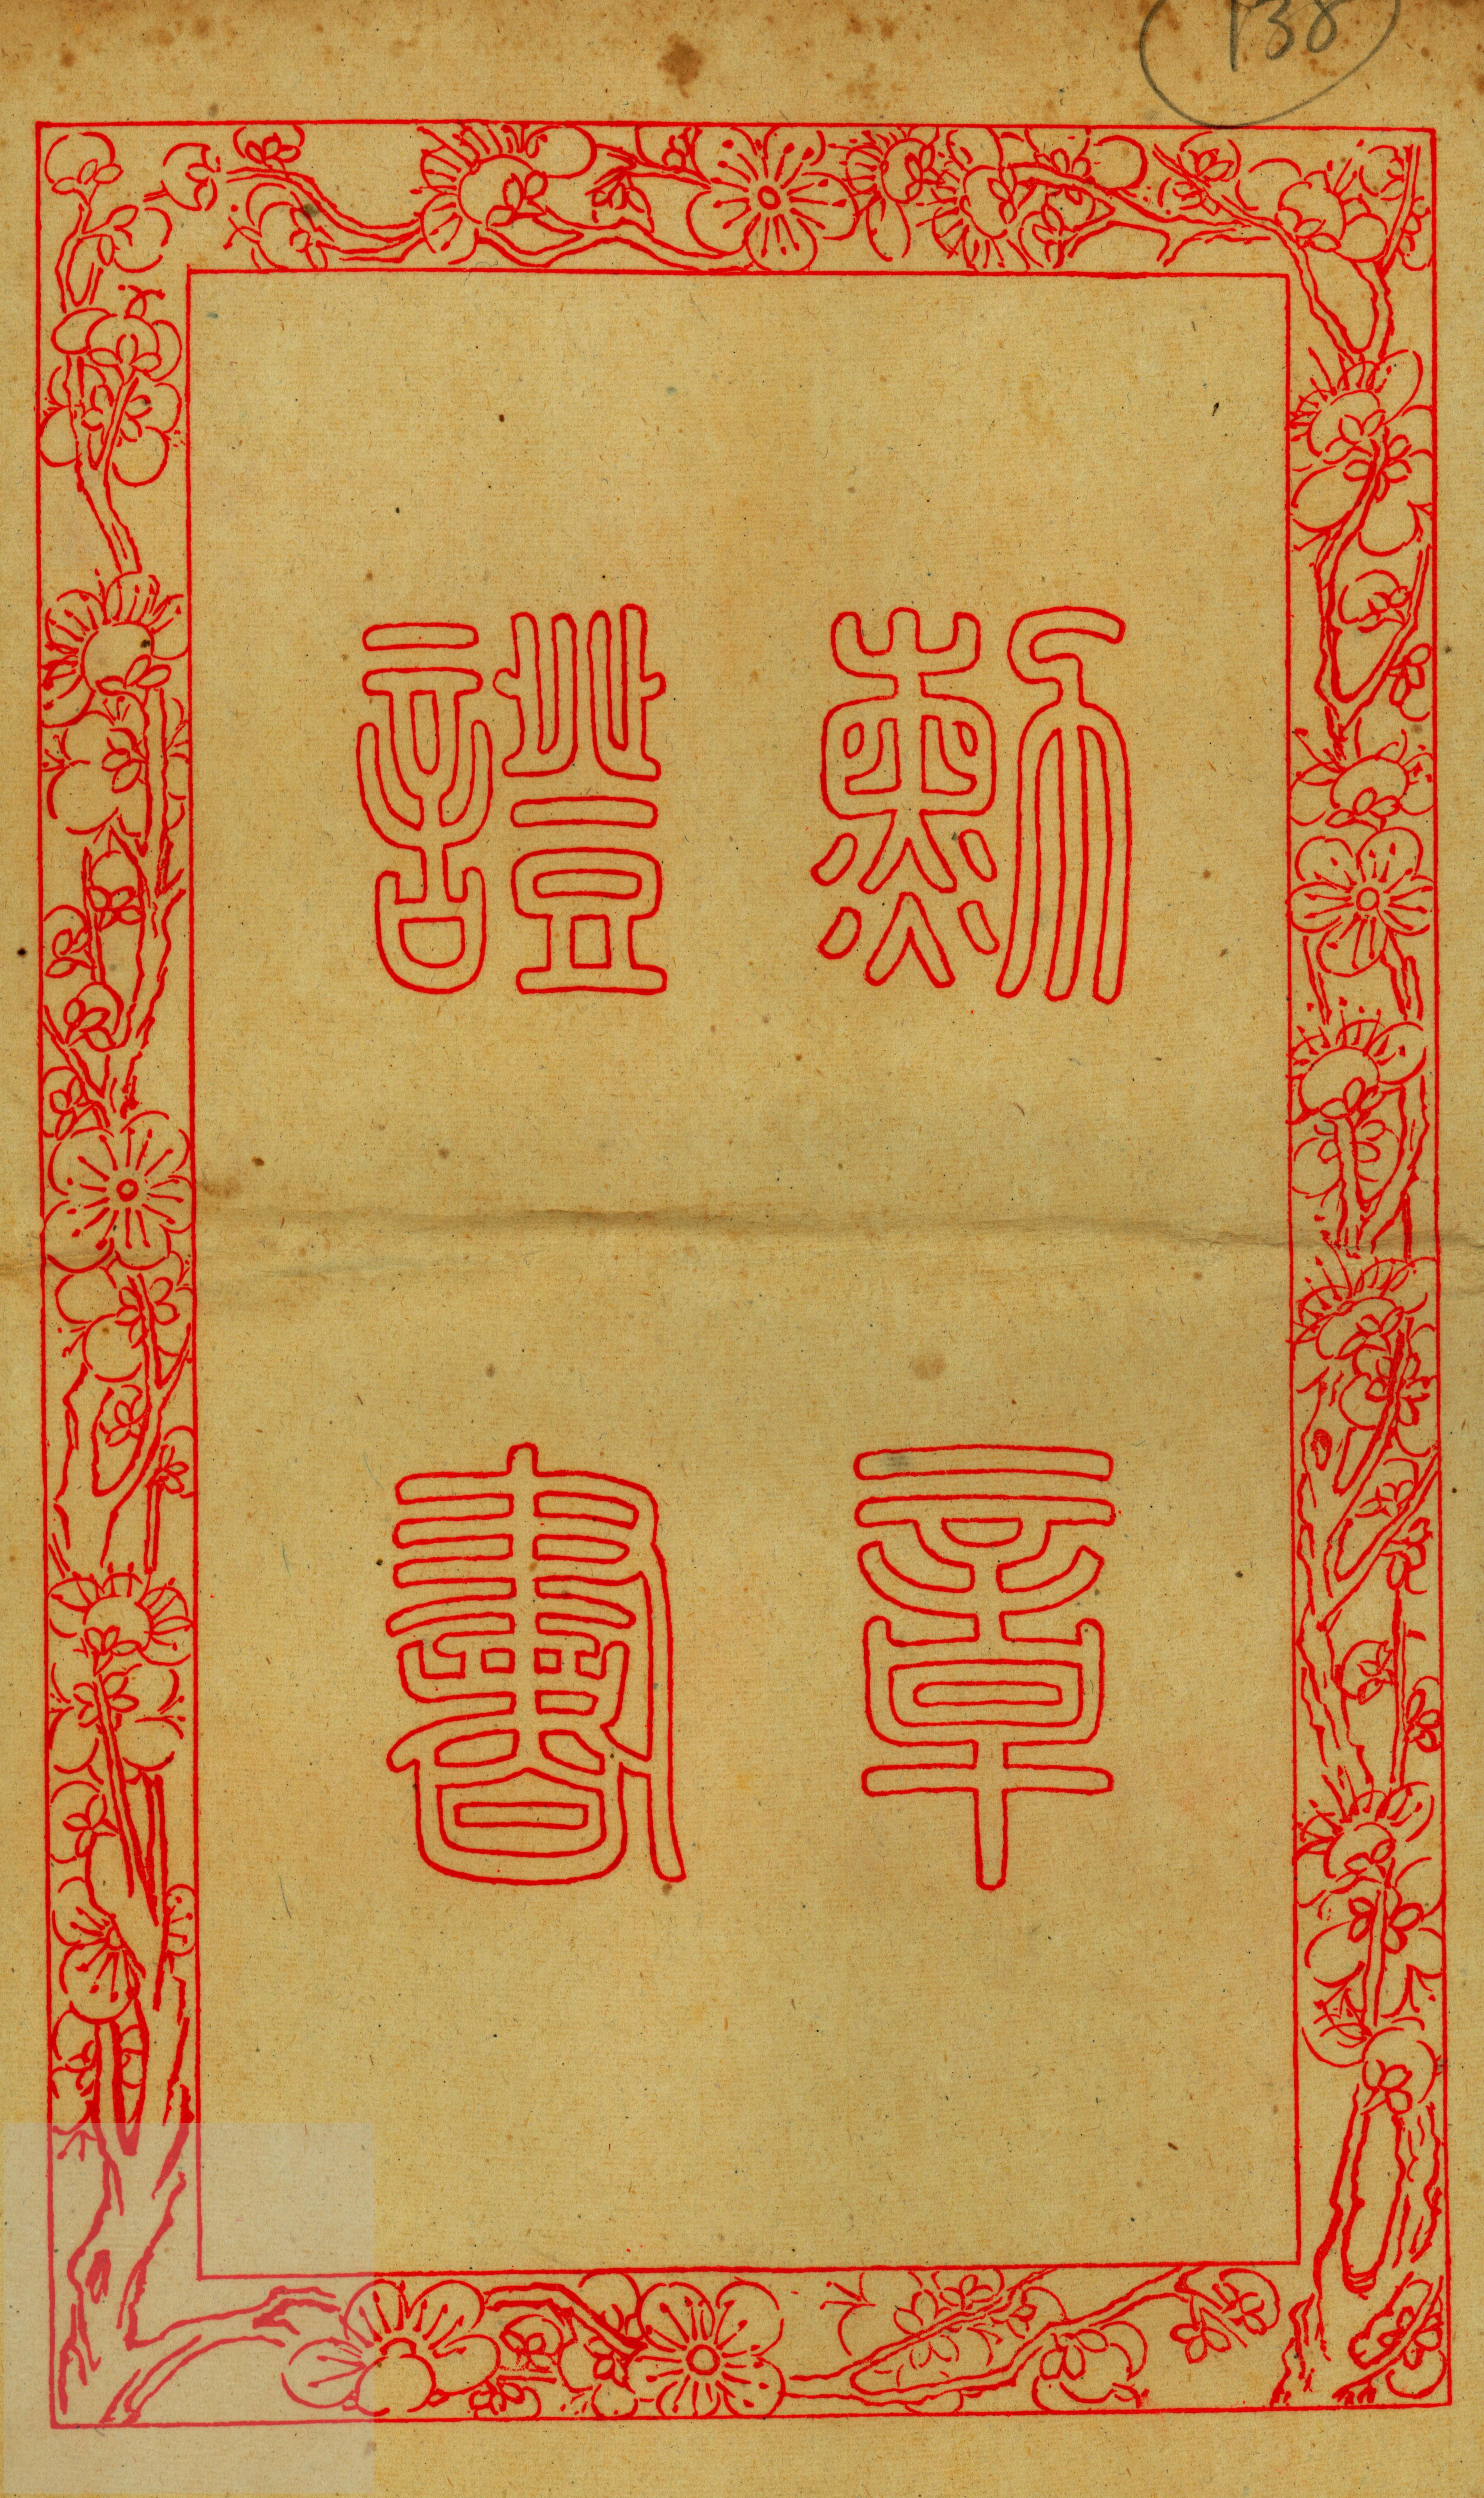 138
勳章
證書